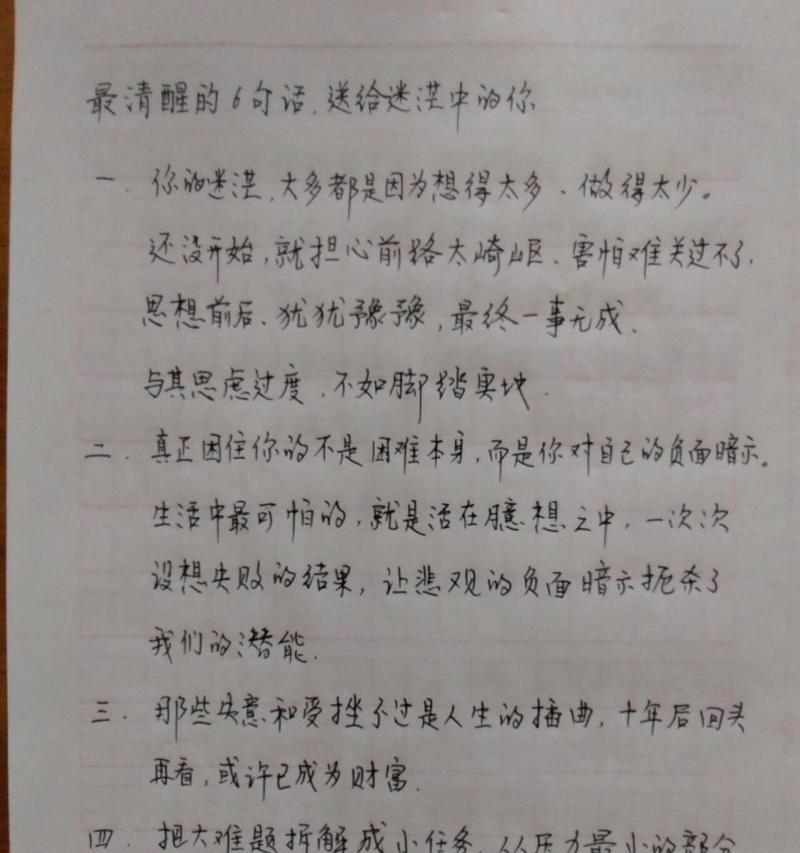 最清醒的6句话，送给迷茫中的你
一．你的迷茫，大多都是因为想得太多、做得太少。
还没开始，就担心前路太崎岖、害怕难关过不了，
思想前后、犹犹豫豫，最终一事无成．
与其思虑过度，不如脚踏实地．
二．真正困住你的不是困难本身，而是你对自己的负面暗示。
生活中最可怕的，就是活在臆想之中，一次次
设想失败的结果，让悲观的负面暗示扼杀了
我们的潜能．
三．那些失意和受挫不过是人生的插曲，十年后回头
再看，或许已成为财富．
四．把大难题拆解成小任务，从压力最小的部分